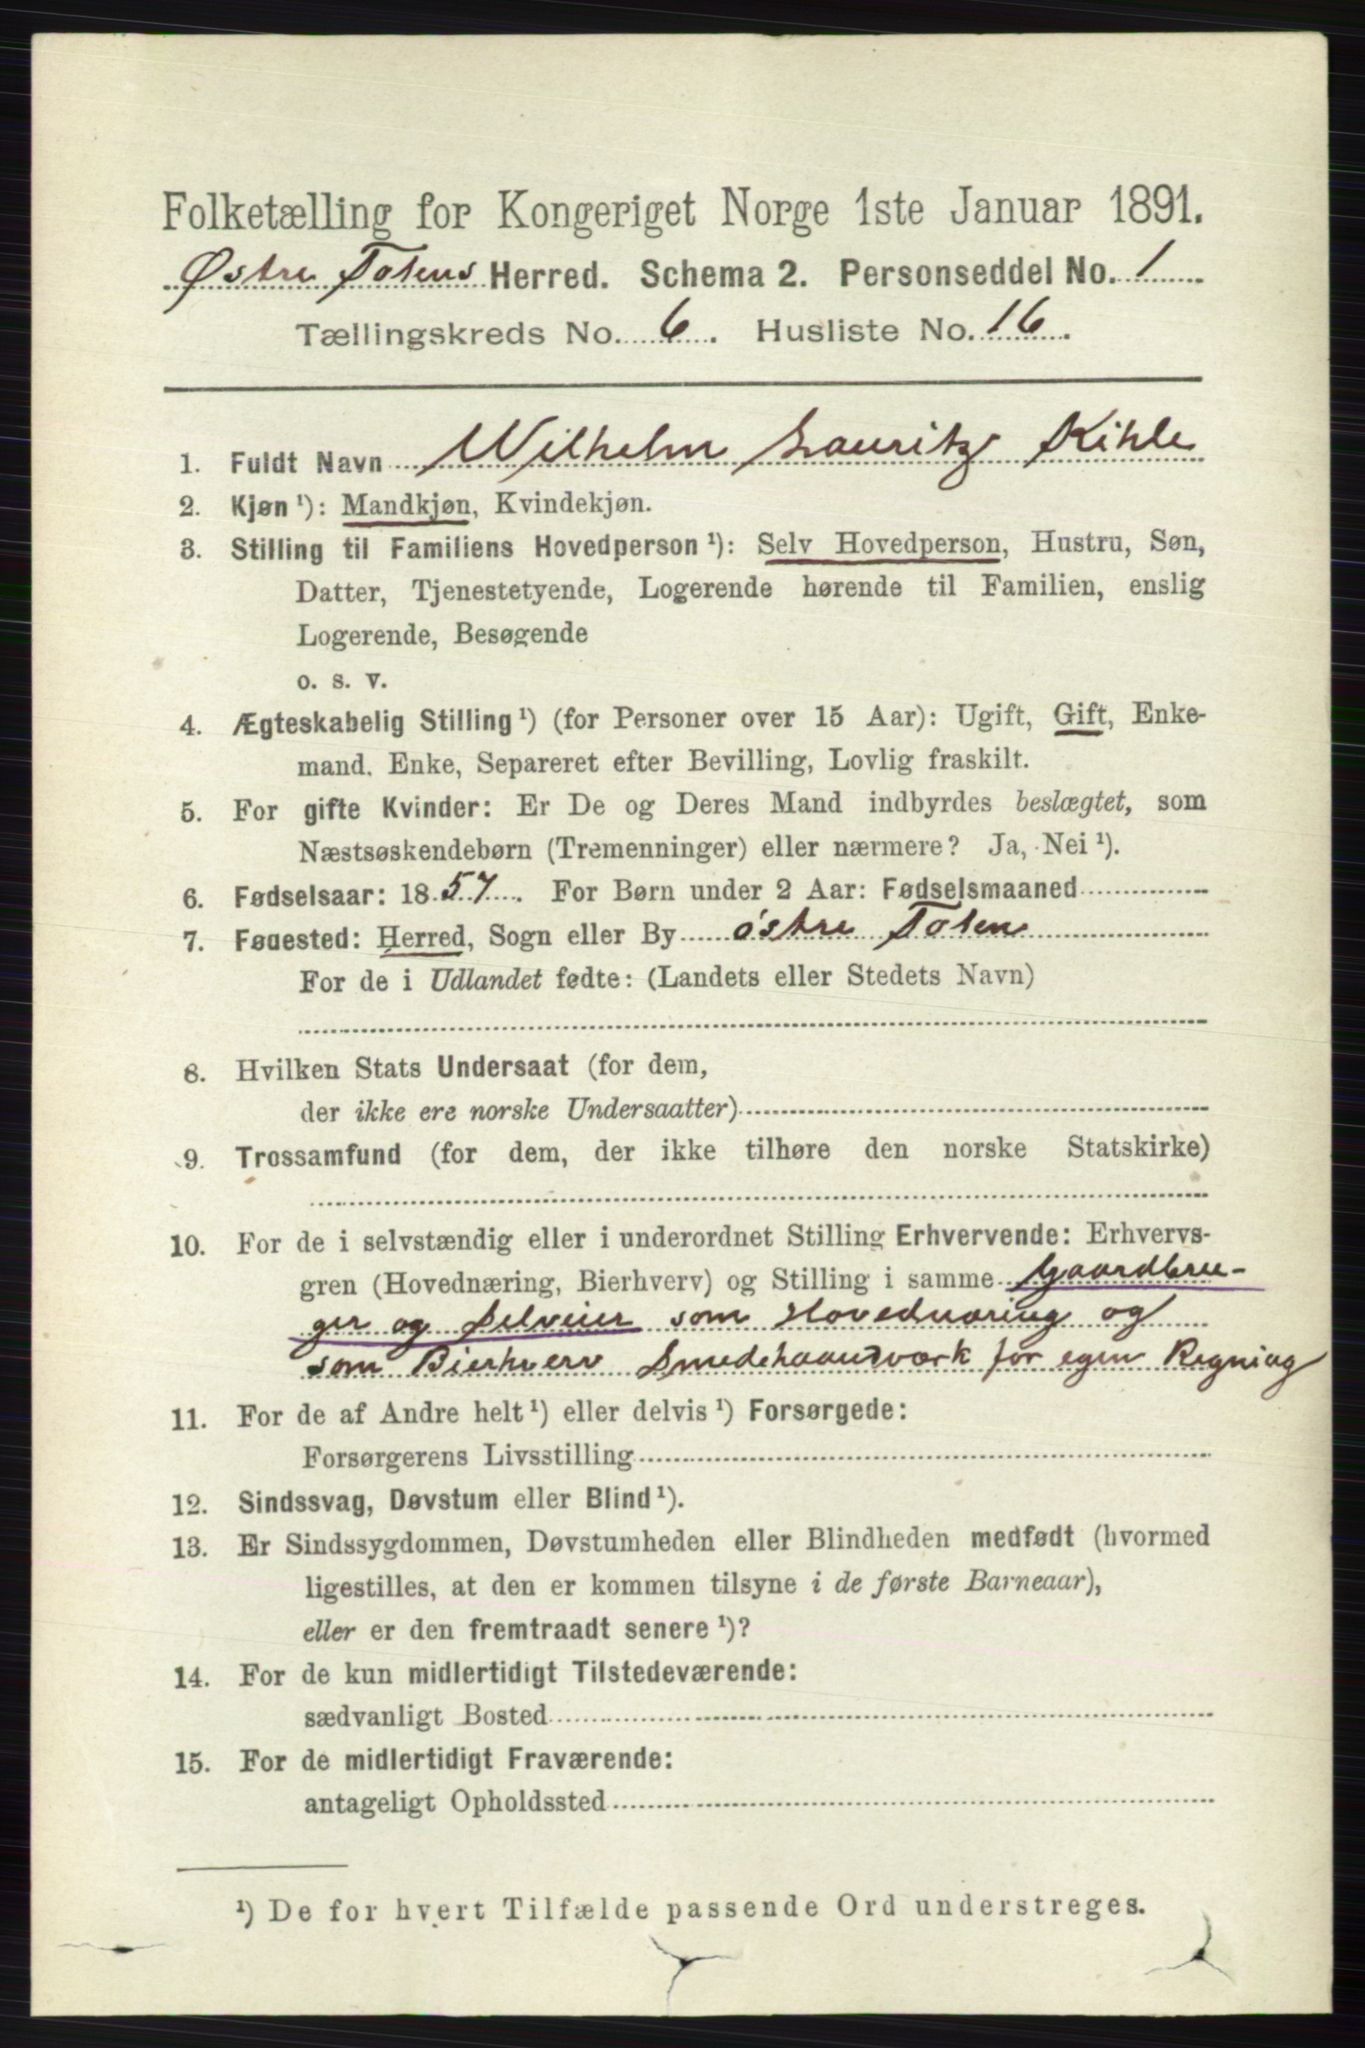 Folketælling for Kongeriget Norge 1ste Januar 1891.
Østre Totens Herred. Schema 2. Personseddel No. 1
Tællingskreds No. 6. Husliste No. 16.
1. Fuldt Navn Wilhelm Lauritz Kihle
2. Kjøn ¹): Mandkjøn, Kvindekjøn.
3. Stilling til Familiens Hovedperson ¹): Selv Hovedperson, Hustru, Søn,
Datter, Tjenestetyende, Logerende hørende til Familien, enslig
Logerende, Besøgende
o. s. v.
4. Ægteskabelig Stilling ¹) (for Personer over 15 Aar): Ugift, Gift, Enke-
mand, Enke, Separeret efter Bevilling, Lovlig fraskilt.
5. For gifte Kvinder: Er De og Deres Mand indbyrdes beslægtet, som
Næstsøskendebørn (Tremenninger) eller nærmere? Ja, Nei ¹).
6. Fødselsaar: 1857. For Børn under 2 Aar: Fødselsmaaned
7. Fødested: Herred, Sogn eller By østre Toten
For de i Udlandet fødte: (Landets eller Stedets Navn)
8. Hvilken Stats Undersaat (for dem,
der ikke ere norske Undersaatter)
9. Trossamfund (for dem, der ikke tilhøre den norske Statskirke)
10. For de i selvstændig eller i underordnet Stilling Erhvervende: Erhvervs-
gren (Hovednæring, Bierhverv) og Stilling i samme Gaardbru-
ger og Selveier som Hovednæring og
som Bierhverv Smedehaandværk for egen Regning
11. For de af Andre helt ¹) eller delvis ¹) Forsørgede:
Forsørgerens Livsstilling
12. Sindssvag, Døvstum eller Blind ¹).
13. Er Sindssygdommen, Døvstumheden eller Blindheden medfødt (hvormed
ligestilles, at den er kommen tilsyne i de første Barneaar),
eller er den fremtraadt senere ¹)?
14. For de kun midlertidigt Tilstedeværende:
sædvanligt Bosted
15. For de midlertidigt Fraværende:
antageligt Opholdssted
¹) De for hvert Tilfælde passende Ord understreges.